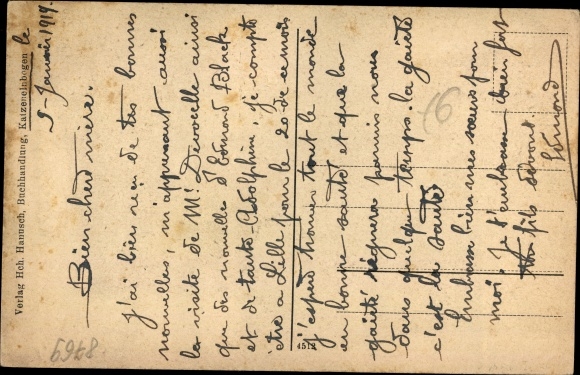 Verlag Hch. Hanusch, Buchhandlung, Katzenelnbogen le
5-Janvier 1919.
Bien chère mère.
J'ai bien reçu de tes bonnes
nouvelles, m'apprenant aussi
la visite de Mr Deroeille ainsi
que des nouvelles d'Edmond Black
et de tante Adolphine, je compte
être a Lille pour le 20 de ce mois
j'espère trouver tout le monde
en bonne santé et que la
gaité règnera parmis nous
dans quelque temps. la gaieté
c'est la santé
Embrasse bien mes sœurs pour
moi. Je t'embrasse bien fort
ton fils dévoué
Edmond
16
4512
6978